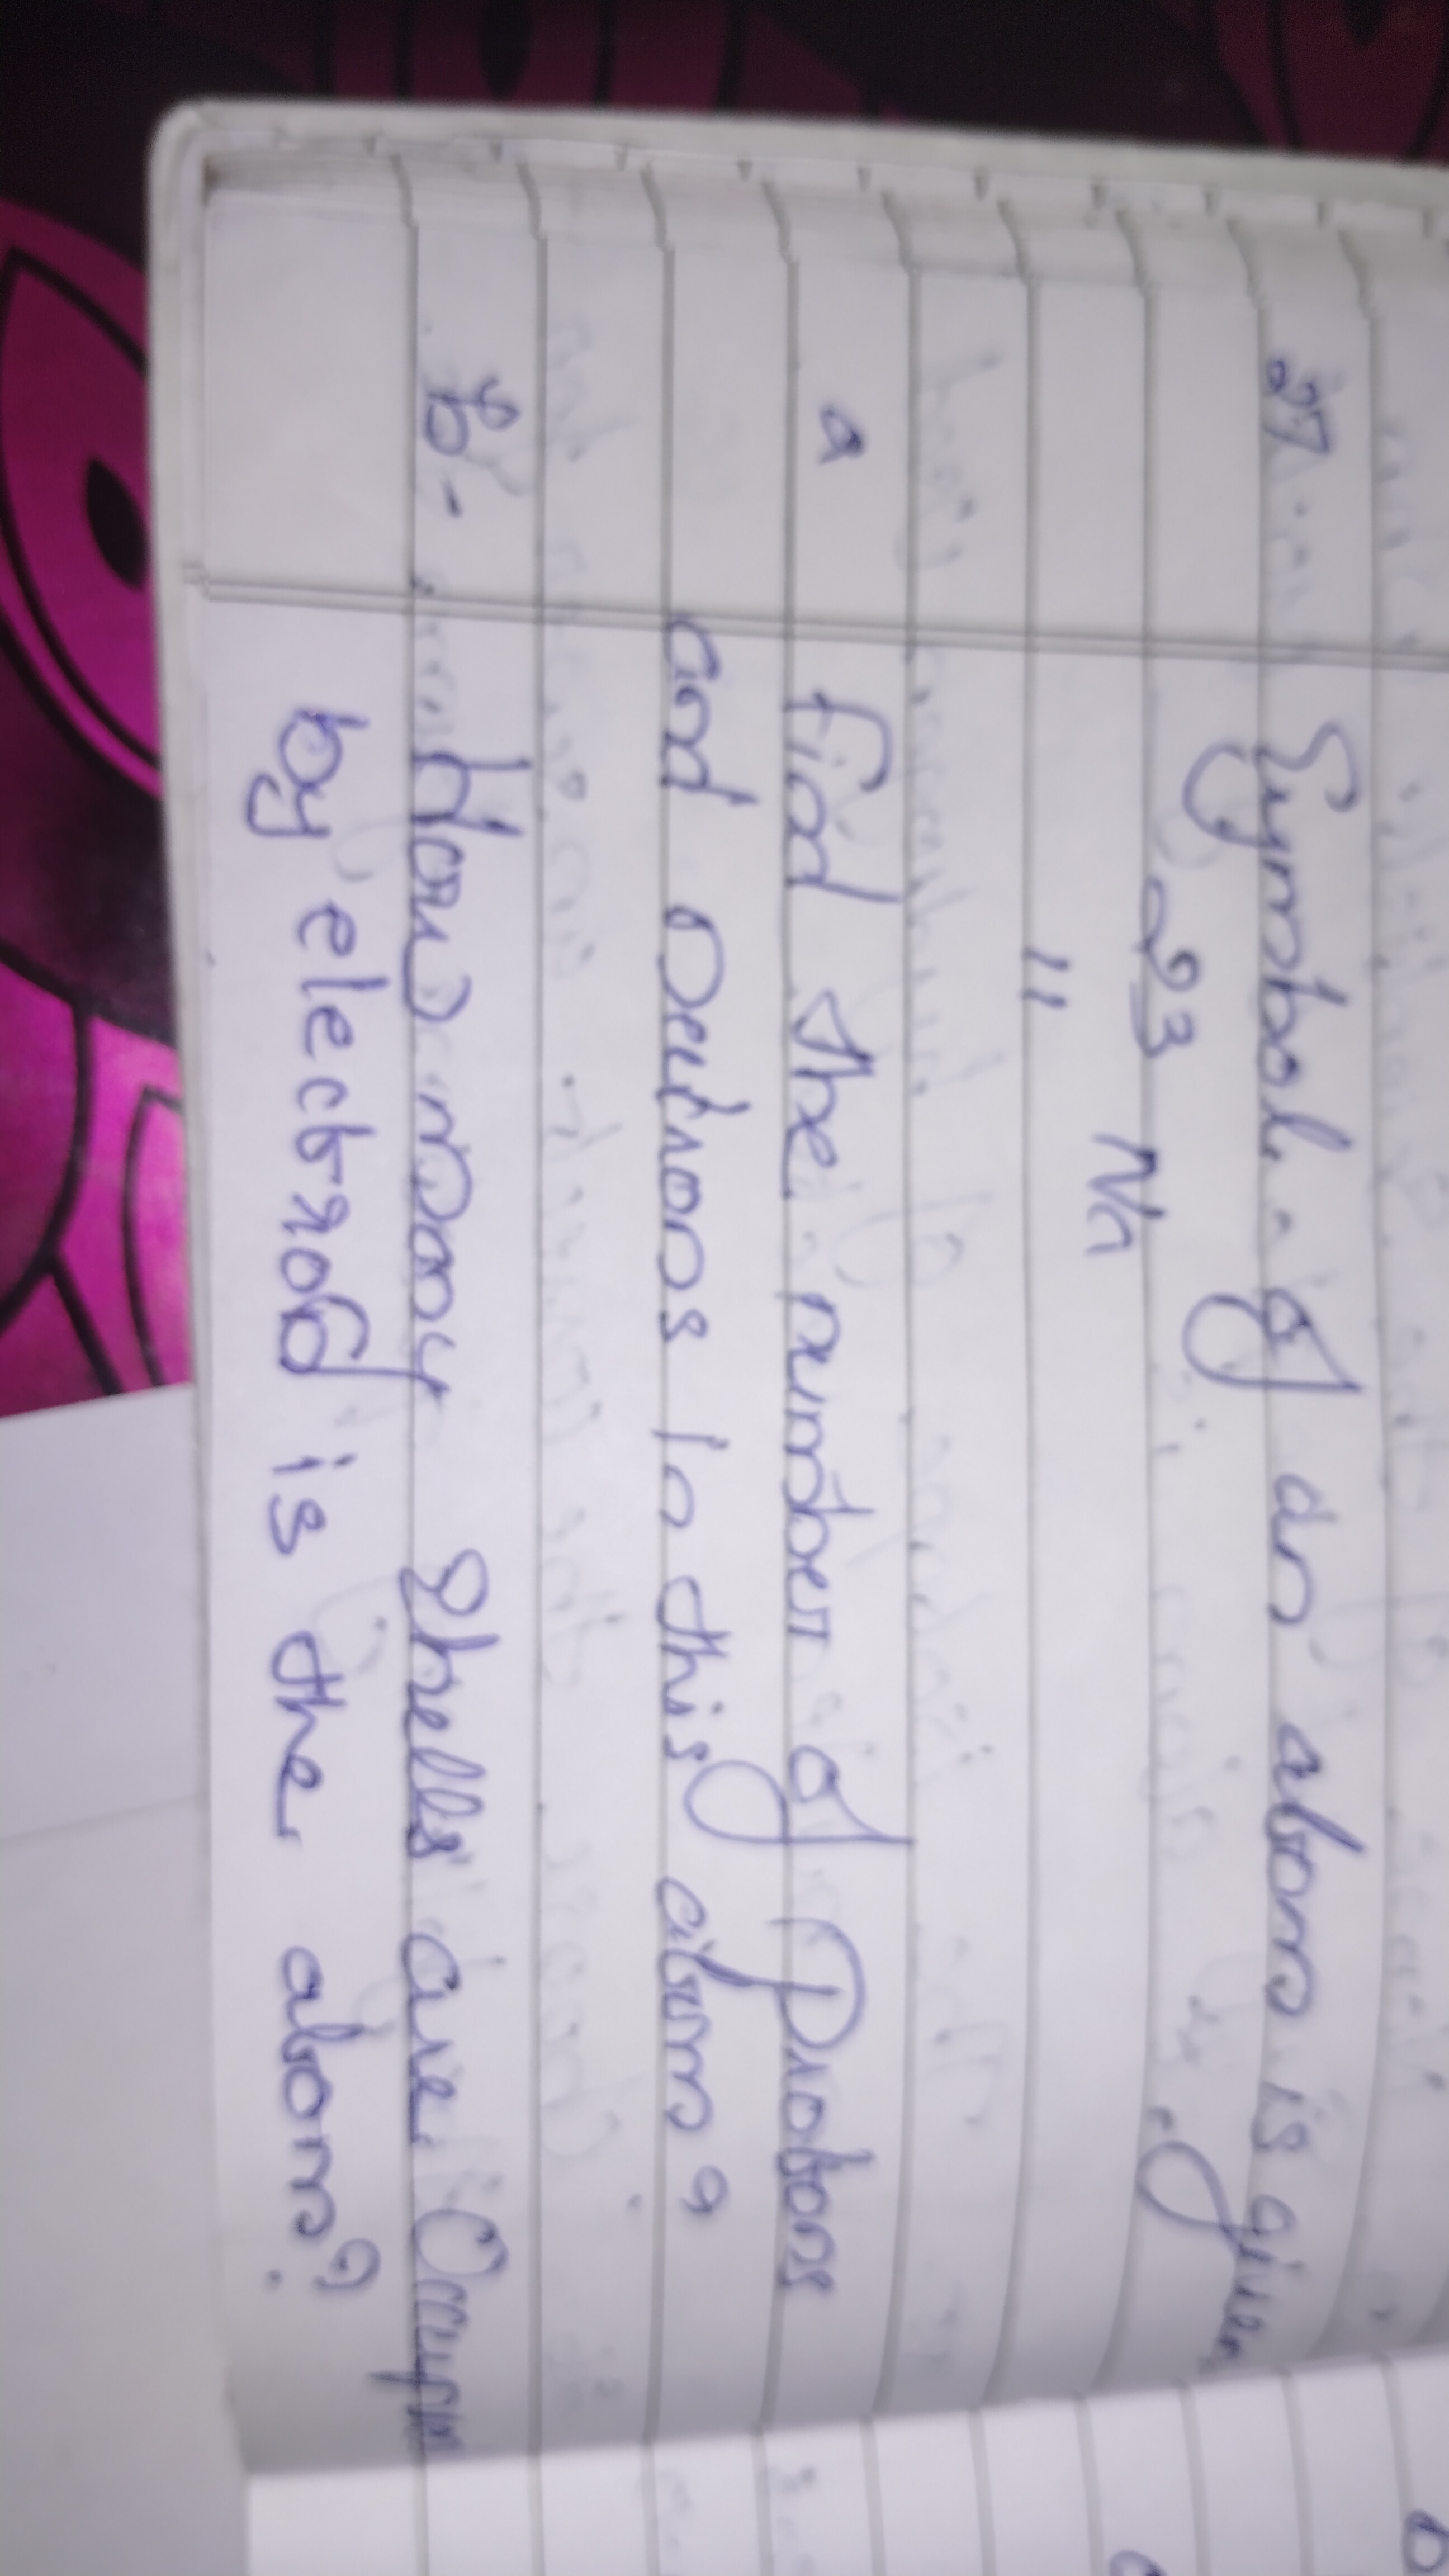 27 Symbol of an atom is given
23 Na
11
a find the number of Protons
and Neutrons in this atom?
b- How many Shells are Occupi
by electrons is the atom?